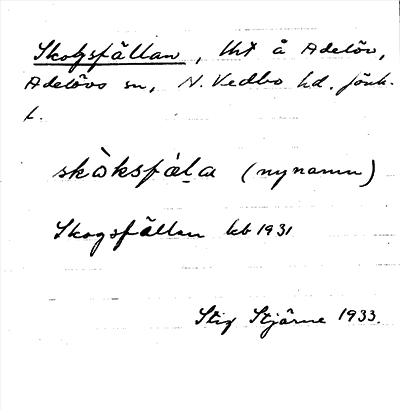 Skogsfällan, lht å Adelöv,
Adelövs sn, N. Vedbo hd. Jönk.
l.
skòksfäḷa (nynamn)
Skogsfällan kb 1931
Stig Stjärne 1933.